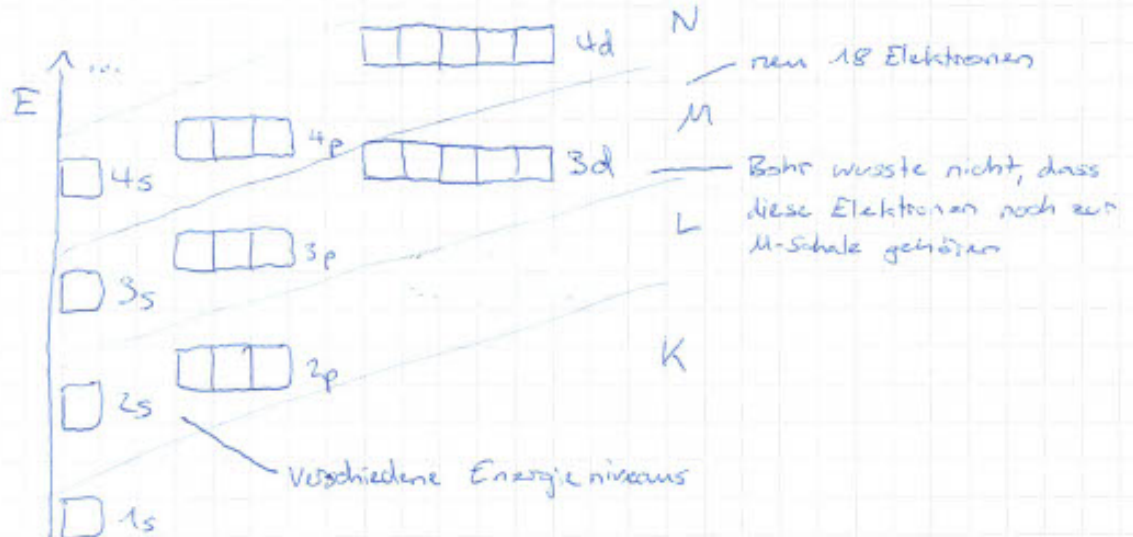 N
4d
neu 18 Elektronen
...
E
M
4p
3d
Bohr wusste nicht, dass
diese Elektronen noch zur
M-Schale gehören
4s
L
3p
3s
...
K
2p
2s
Verschiedene Energieniveaus
1s